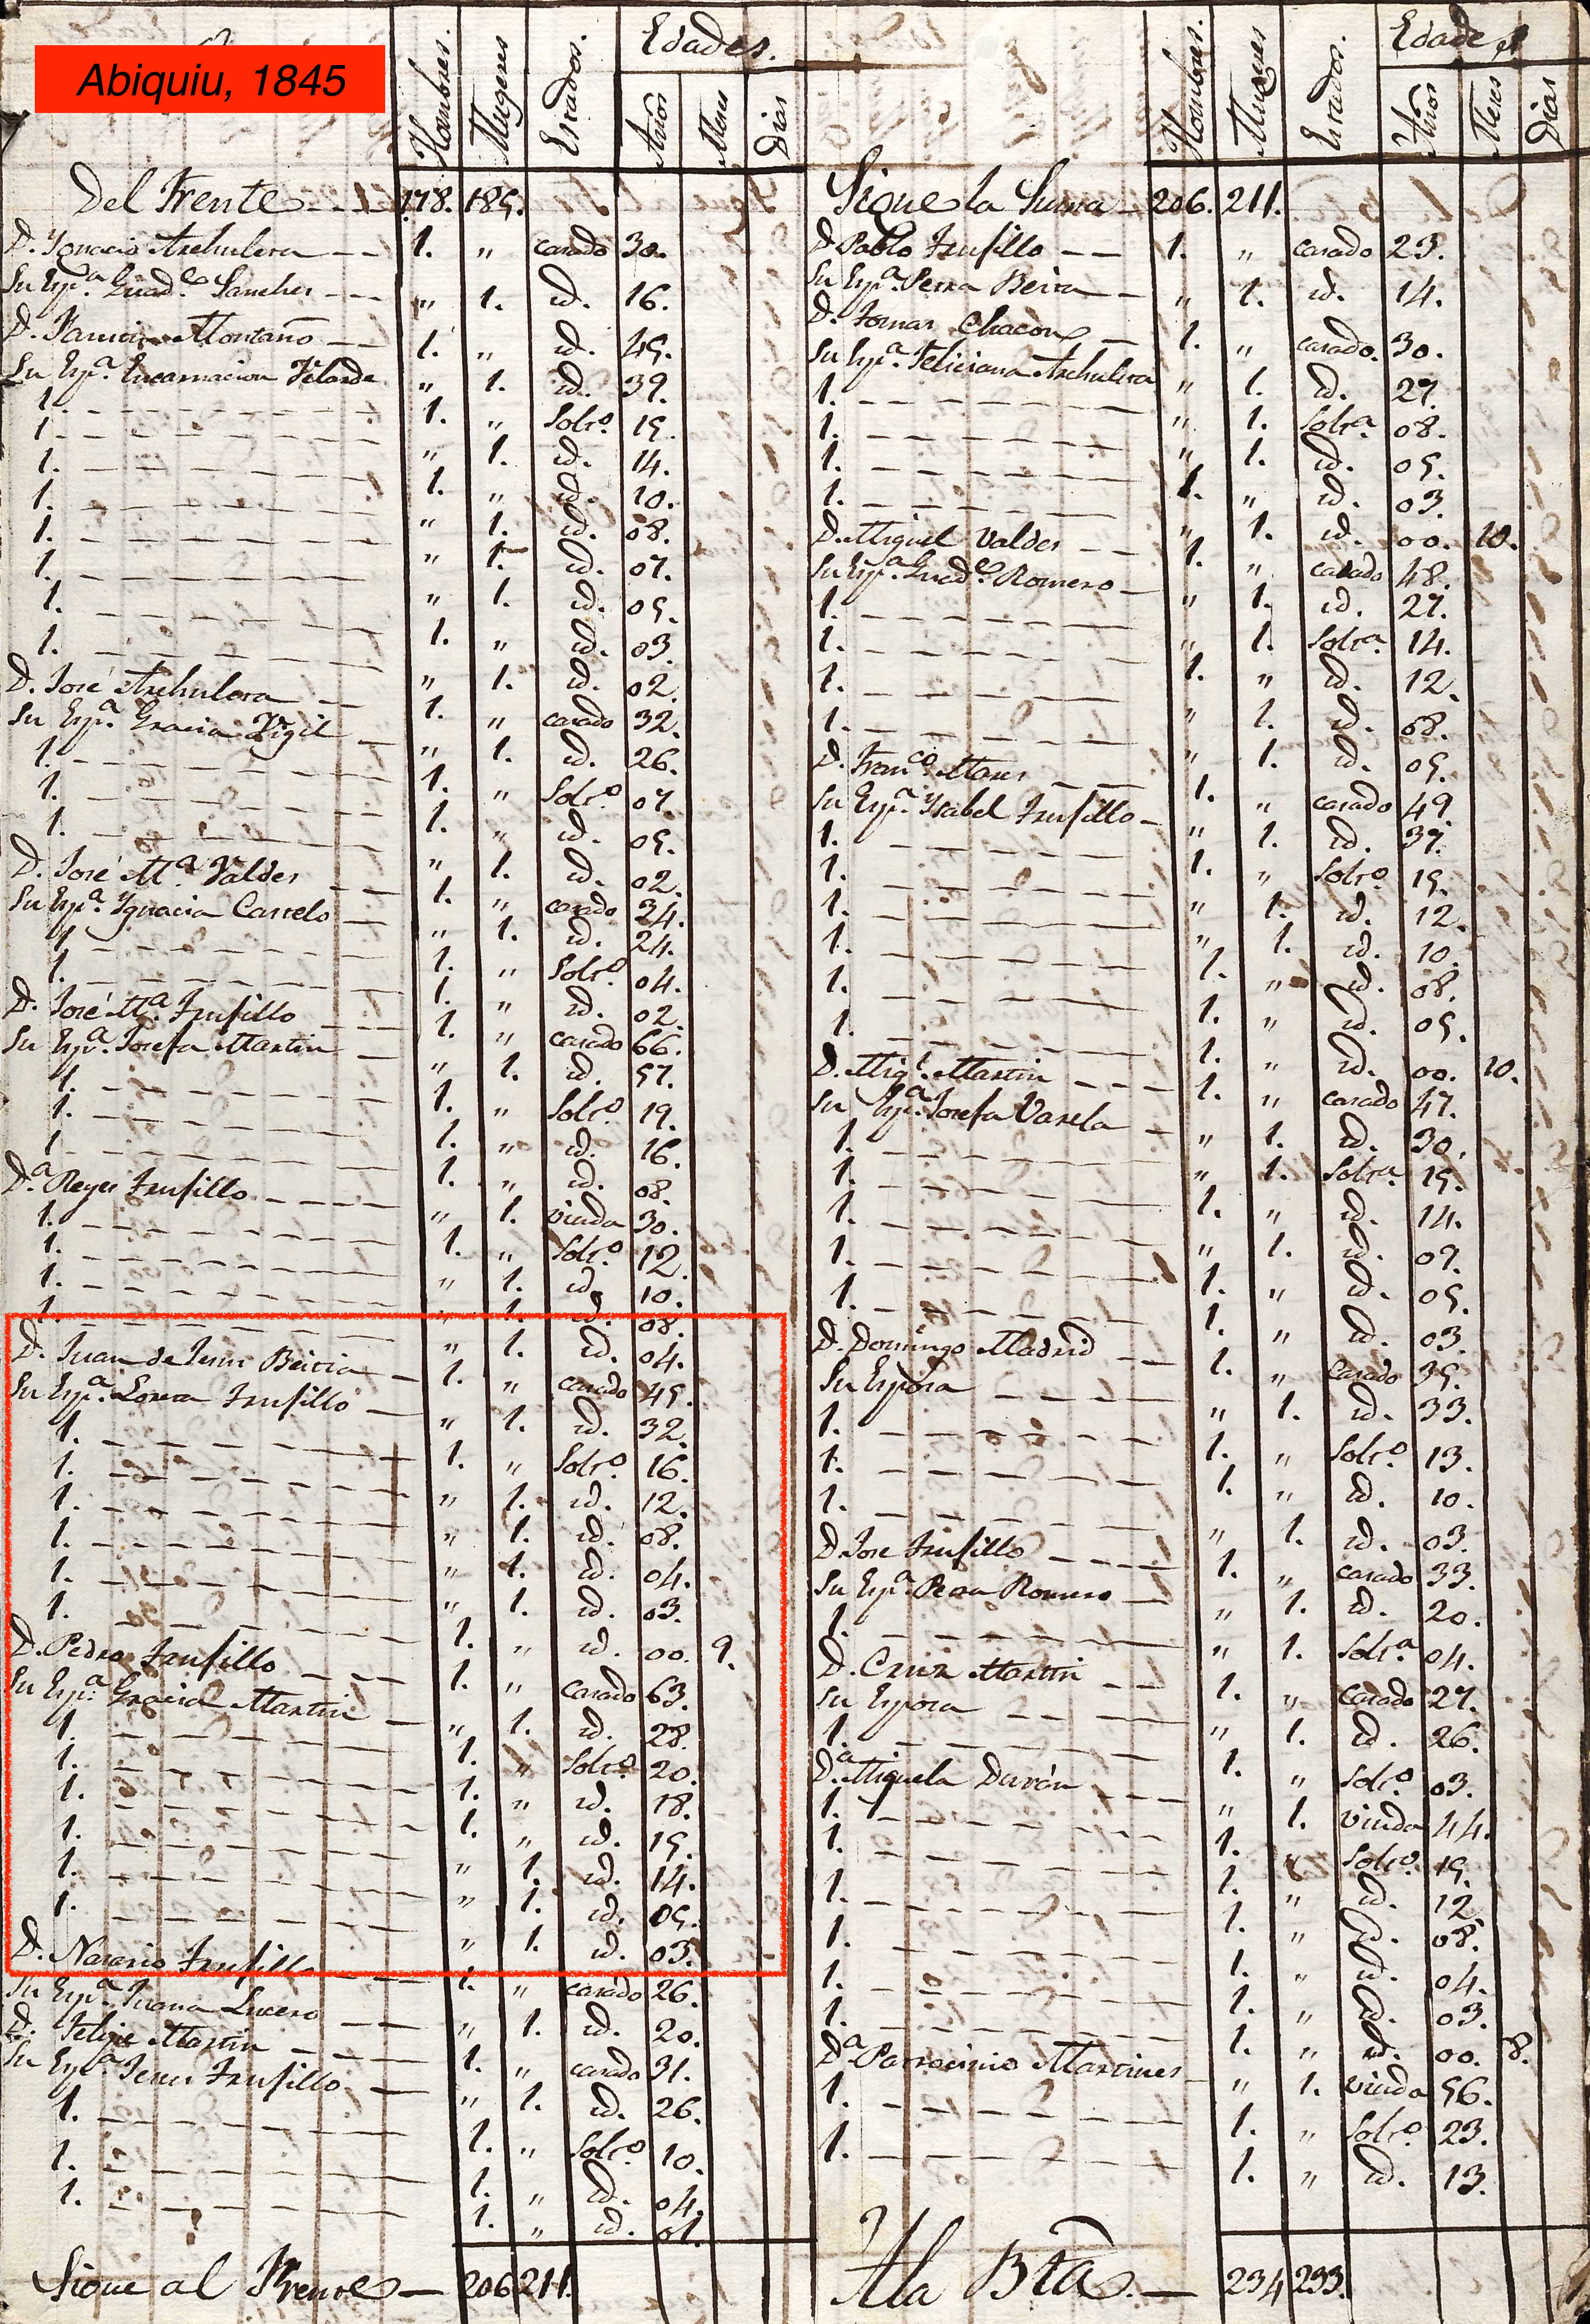 Abiquiu, 1845
Hombres. Mugeres Estados. Edades. Años Meses Dias
Del Frente 178. 185.
D. Ygnacio Archuleta 1. „ casado 30.
Su Esp.a Guad.e Sanches „ 1. id. 16.
D. Patricio Montaño 1. „ id. 45.
Su Esp.a Encarnacion Velarde „ 1. id. 39.
1. 1. „ Solt.o 15.
1. „ 1. id. 14.
1. 1. „ id. 10.
1. „ 1. id. 08.
1. „ 1. id. 07.
1. „ 1. id. 05.
1. 1. „ id. 03.
1. „ 1. id. 02.
D. José Archuleta 1. „ casado 32.
Su Esp.a Gracia Vigil „ 1. id. 26.
1. 1. „ Solt.o 07.
1. 1. „ id. 05.
1. „ 1. id. 02.
D. José M.a Valdes 1. „ casado 34.
Su Esp.a Ygnacia „ 1. id. 24.
1. 1. „ Solt.o 04.
1. 1. „ id. 02.
D. José M.a Trujillo 1. „ casado 66.
Su Esp.a Josefa Martin „ 1. id. 57.
1. 1. „ Solt.o 19.
1. 1. „ id. 16.
1. 1. „ id. 08.
D.a Reyes Trujillo „ 1. viuda 30.
1. 1. „ Solt.o 12.
1. „ 1. id. 10.
1. „ 1. id. 08.
1. „ 1. id. 04.
D. Juan de Jesus Beitia 1. „ casado 45.
Su Esp.a Trujillo „ 1. id. 32.
1. 1. „ Solt.o 16.
1. „ 1. id. 12.
1. „ 1. id. 08.
1. „ 1. id. 04.
1. „ 1. id. 03.
1. 1. „ id. 00. 9.
D. Pedro Trujillo 1. „ casado 63.
Su Esp.a Gracia Martin „ 1. id. 28.
1. 1. „ Solt.o 20.
1. 1. „ id. 18.
1. 1. „ id. 15.
1. „ 1. id. 14.
1. „ 1. id. 05.
1. „ 1. id. 03.
D. Nasario Trujillo 1. „ casado 26.
Su Esp.a Juana Lucero „ 1. id. 20.
D. Felipe Martin 1. „ casado 31.
Su Esp.a Jesus Trujillo „ 1. id. 26.
1. 1. „ Solt.o 10.
1. 1. „ id. 04.
1. 1. „ id. 01.
Sigue al Frente 206 211.
Hombres. Mugeres Estados. Edades Años Meses Dias
Sigue la Suma 206. 211.
D. Pablo Trujillo 1. „ casado 23.
Su Esp.a Beitia „ 1. id. 14.
D. Tomas Chacon 1. „ casado. 30.
Su Esp.a Feliciana Archuleta „ 1. id. 27.
1. „ 1. Solt.a 08.
1. „ 1. id. 05.
1. 1. „ id. 03.
1. „ 1. id. 00. 10.
D. Miguel Valdes 1. „ casado 48.
Su Esp.a Guad.e Romero „ 1. id. 27.
1. „ 1. Solt.a 14.
1. 1. „ id. 12.
1. „ 1. id. 08.
1. „ 1. id. 05.
D. Fran.co Mares 1. „ casado 49.
Su Esp.a Ysabel Trujillo „ 1. id. 37.
1. 1. „ Solt.o 15.
1. „ 1. id. 12.
1. „ 1. id. 10.
1. 1. „ id. 08.
1. 1. „ id. 05.
1. 1. „ id. 00. 10.
D. Mig.l Martin 1. „ casado 47.
Su Esp.a Josefa Varela „ 1. id. 30.
1. „ 1. Solt.a 15.
1. 1. „ id. 14.
1. „ 1. id. 07.
1. 1. „ id. 05.
1. 1. „ id. 03.
D. Domingo Madrid 1. „ casado 35.
Su Esposa „ 1. id. 33.
1. 1. „ Solt.o 13.
1. 1. „ id. 10.
1. „ 1. id. 03.
D. Jose Trujillo 1. „ casado 33.
Su Esp.a Romero „ 1. id. 20.
1. „ 1. Solt.a 04.
D. Cruz Martin 1. „ casado 27.
Su Esposa „ 1. id. 26.
1. 1. „ Solt.o 03.
D.a Miguela Durán „ 1. viuda 44.
1. 1. „ Solt.o 15.
1. 1. „ id. 12.
1. 1. „ id. 08.
1. 1. „ id. 04.
1. 1. „ id. 03.
1. 1. „ id. 00. 8.
D.a Patrocinio Martines „ 1. viuda 56.
1. 1. „ Solt.o 23.
1. 1. „ id. 13.
A la Bta. 234 233.